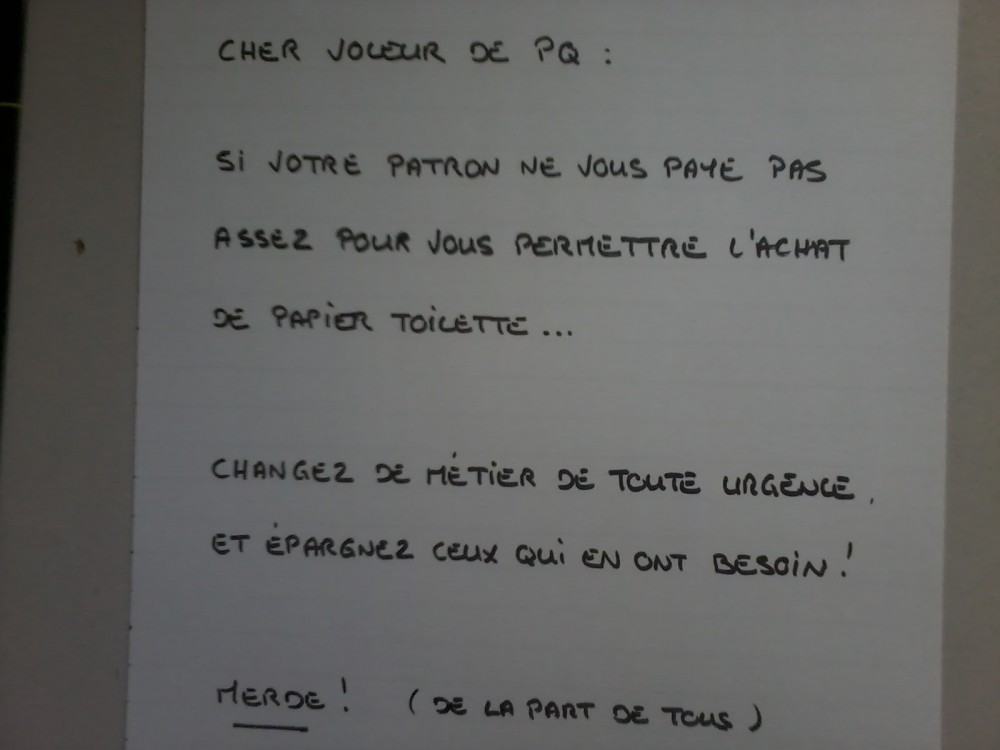 CHER VOLEUR DE PQ :
Si VOTRE PATRON NE VOUS PAYE PAS
ASSEZ POUR VOUS PERMETTRE L'ACHAT
DE PAPiER TOiLETTE ...
CHANGEZ DE MÉTiER DE TOUTE URGENCE,
ET ÉPARGNEZ CEUX QUi EN ONT BESOiN !
MERDE ! ( DE LA PART DE TOUS )